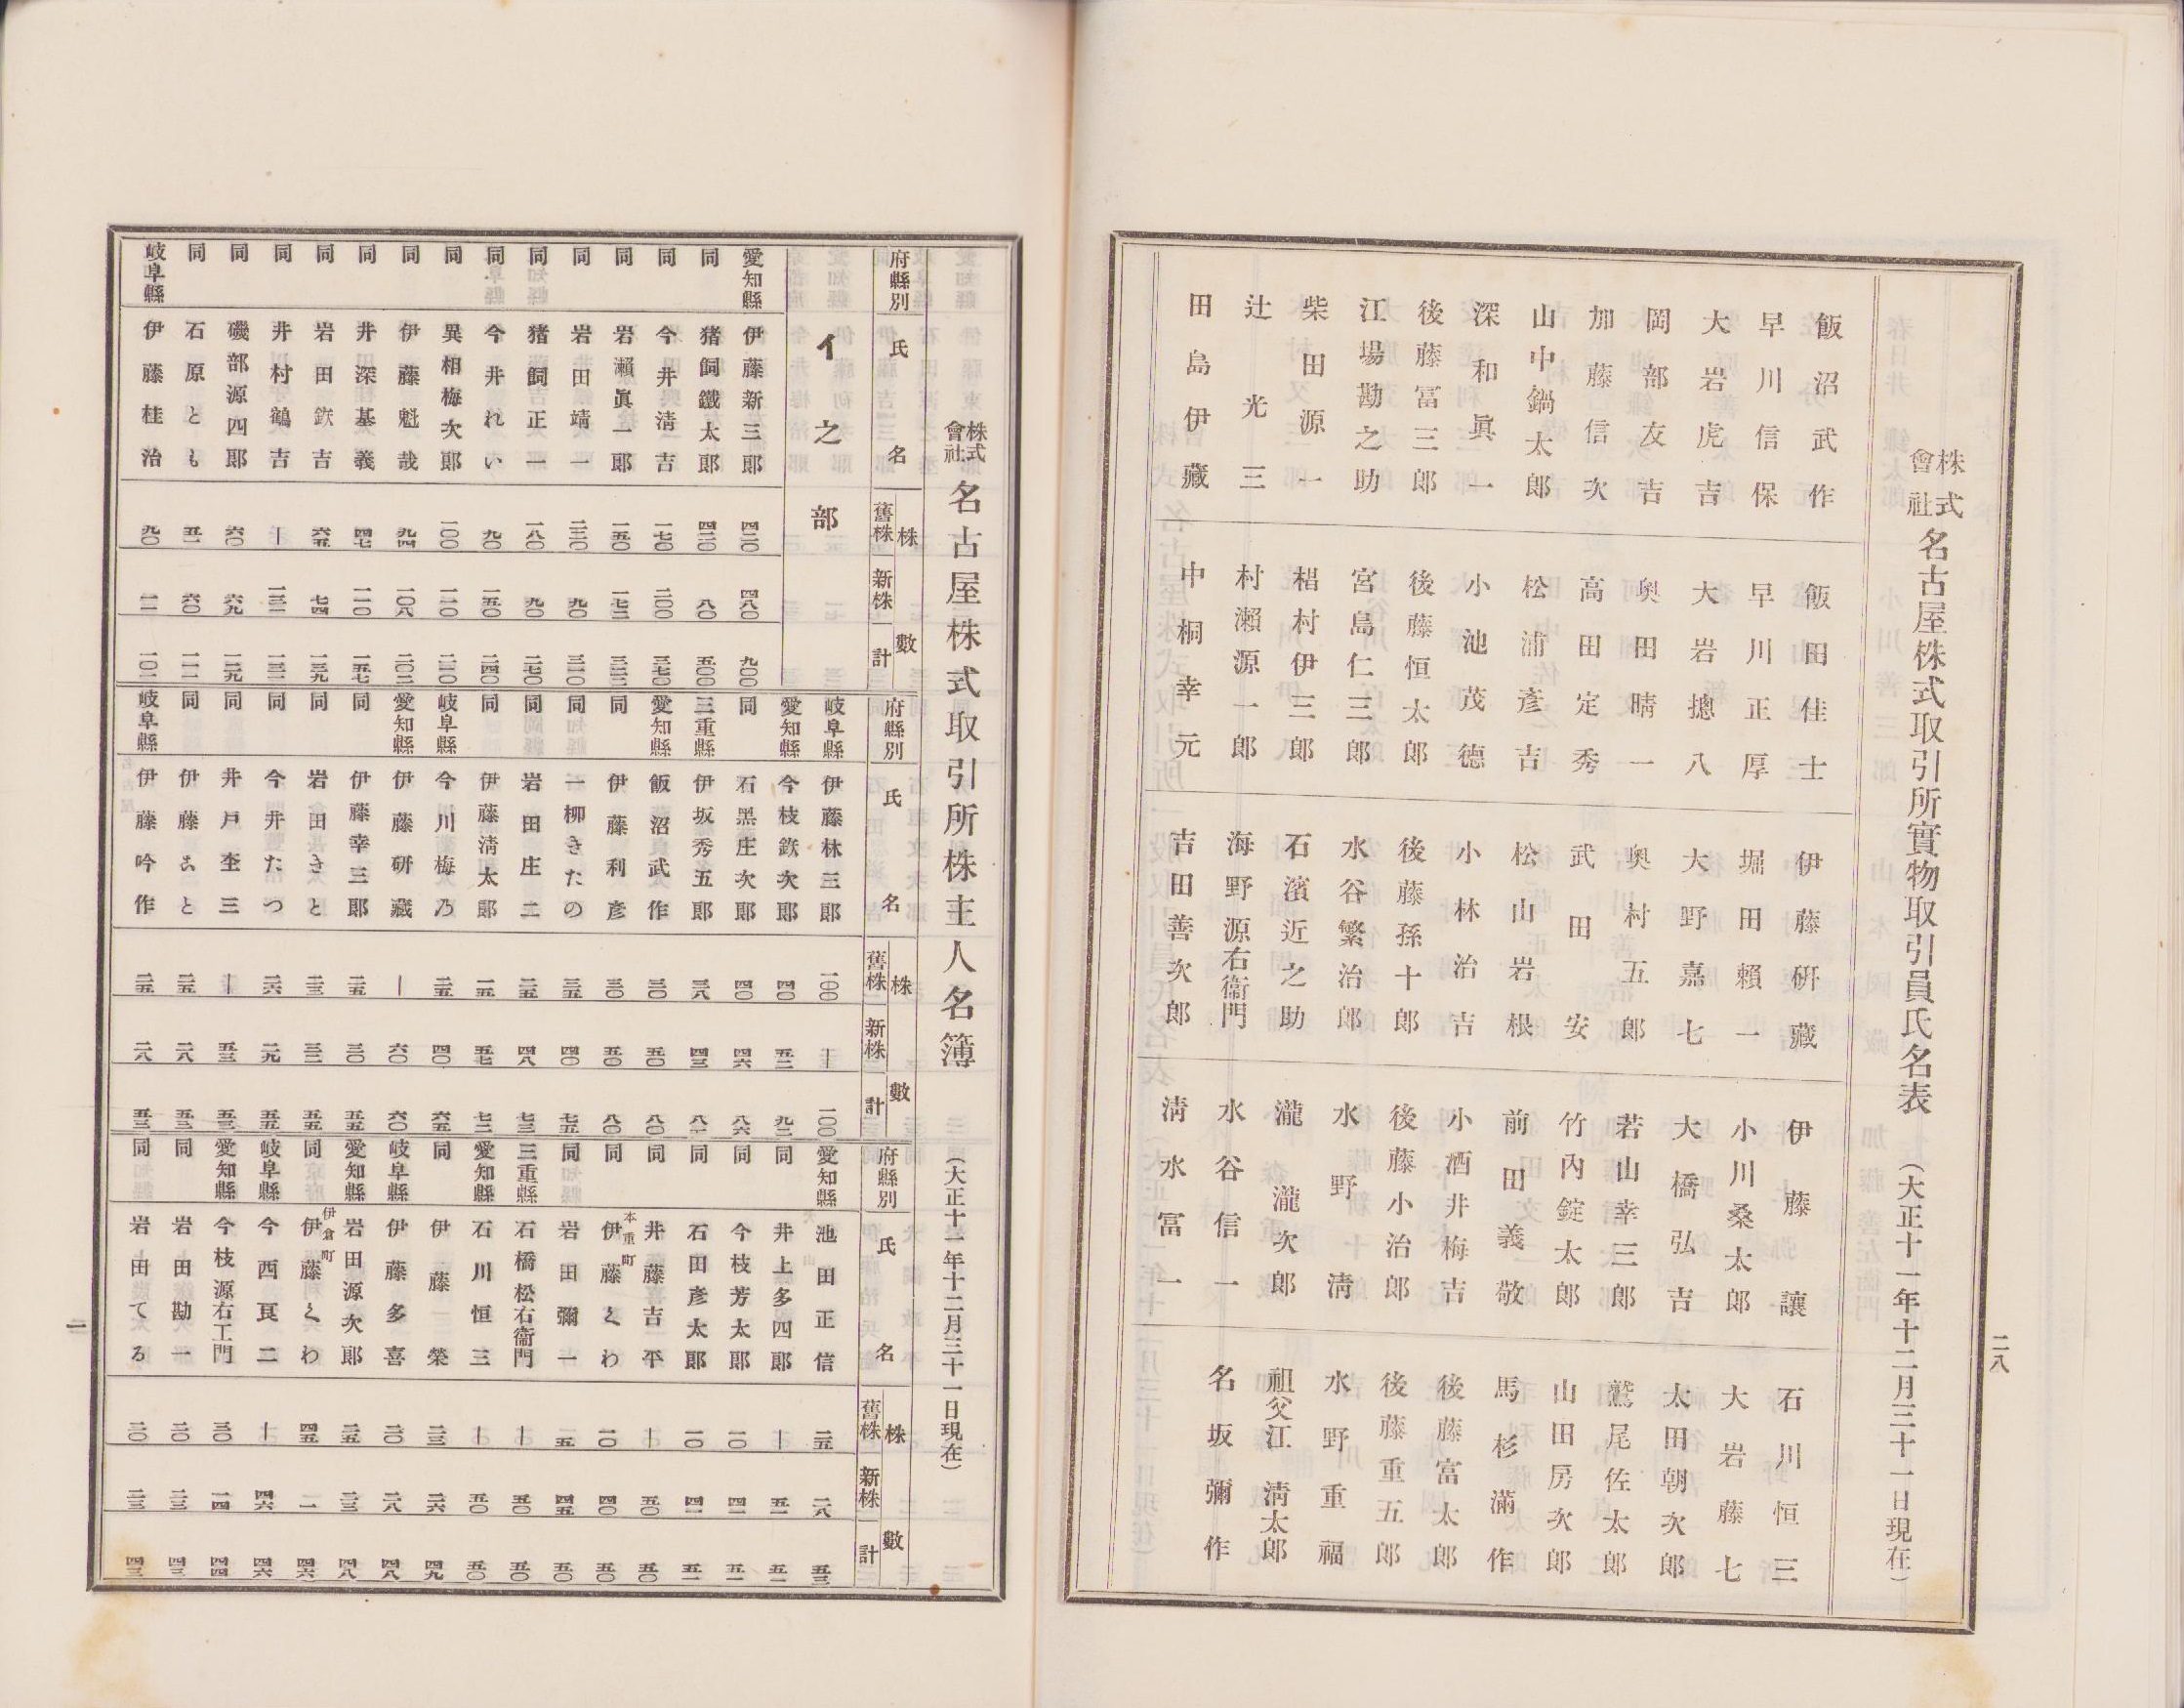 二八
株式會社 名古屋株式取引所實物取引員氏名表 （大正十一年十二月三十一日現在）
飯沼武作
早川信保
大岩虎吉
岡部友吉
加藤信次
山中鍋太郎
深和眞一
後藤冨三郎
江場勘之助
柴田源一
辻光三
田島伊藏
飯田佳士
早川正厚
大岩摠八
奥田晴一
高田定秀
松浦彥吉
小池茂德
後藤恒太郎
宮島仁三郎
椙村伊三郎
村瀨源一郎
中桐幸元
伊藤硏藏
堀田賴一
大野嘉七
奥村五郎
武田安
松山岩根
小林治吉
後藤孫十郎
水谷繁治郎
石濱近之助
海野源右衞門
吉田善次郎
伊藤讓
小川桑太郎
大橋弘吉
若山幸三郎
竹內錠太郎
前田義敬
小酒井梅吉
後藤小治郎
水野淸
瀧瀧次郎
水谷信一
淸水冨一
石川恒三
大岩藤七
太田朝次郎
鷲尾佐太郎
山田房次郎
馬杉滿作
後藤富太郎
後藤重五郎
水野重福
祖父江淸太郎
名坂彌作
株式會社 名古屋株式取引所株主人名簿 （大正十一年十二月三十一日現在）
府縣別 氏名 株數 舊株 新株 計
イ之部
愛知縣 伊藤新三郎 四二〇 四八〇 九〇〇
同 猪飼鐵太郎 四二〇 八〇 五〇〇
同 今井淸吉 一七〇 二〇〇 三七〇
同 岩瀨眞一郎 一五〇 一七二 三二二
同 岩田靖一 二二〇 九〇 三一〇
同 猪飼正一 一八〇 九〇 二七〇
同 今井れい 九〇 一五〇 二四〇
同 異相梅次郎 一〇〇 一二〇 二二〇
同 伊藤魁哉 九四 一〇八 二〇二
同 井深基義 四七 一一〇 一五七
同 岩田鉃吉 六五 七四 一三九
同 井村鶴吉 ― 一三二 一三二
同 磯部源四郎 六〇 六九 一二九
同 石原とも 五一 六〇 一一一
岐阜縣 伊藤桂治 九〇 一二 一〇二
府縣別 氏名 株數 舊株 新株 計
岐阜縣 伊藤林三郎 一〇〇 ― 一〇〇
愛知縣 今枝鉃次郎 四〇 五二 九二
同 石黑庄次郎 四〇 四六 八六
三重縣 伊坂秀五郎 三八 四三 八一
愛知縣 飯沼武作 三〇 五〇 八〇
同 伊藤利彥 三〇 五〇 八〇
同 一柳きたの 三五 四〇 七五
同 岩田庄二 二五 四八 七三
同 伊藤淸太郎 一五 五七 七二
岐阜縣 今川梅乃 二五 四〇 六五
愛知縣 伊藤硏藏 ― 六〇 六〇
同 伊藤幸三郎 二五 三〇 五五
同 岩田きと 二三 三二 五五
同 今井たつ 二六 二九 五五
同 井戸杢三 ― 五三 五三
同 伊藤こと 二五 二八 五三
岐阜縣 伊藤吟作 二五 二八 五三
府縣別 氏名 株數 舊株 新株 計
愛知縣 池田正信 二五 二八 五三
同 井上多四郎 ― 五二 五二
同 今枝芳太郎 一〇 四二 五二
同 石田彥太郎 一〇 四二 五二
同 井藤吉平 ― 五〇 五〇
同 本重町 伊藤とわ 一〇 四〇 五〇
同 岩田彌一 五 四五 五〇
三重縣 石橋松右衞門 ― 五〇 五〇
愛知縣 石川恒三 ― 五〇 五〇
同 伊藤榮 二三 二六 四九
岐阜縣 伊藤多喜 二〇 二八 四八
愛知縣 岩田源次郎 二五 二三 四八
同 伊倉町 伊藤とわ 四五 一 四六
岐阜縣 今西亙二 ― 四六 四六
愛知縣 今枝源右工門 三〇 一四 四四
同 岩田勘一 二〇 二三 四三
同 岩田てる 二〇 二三 四三
一